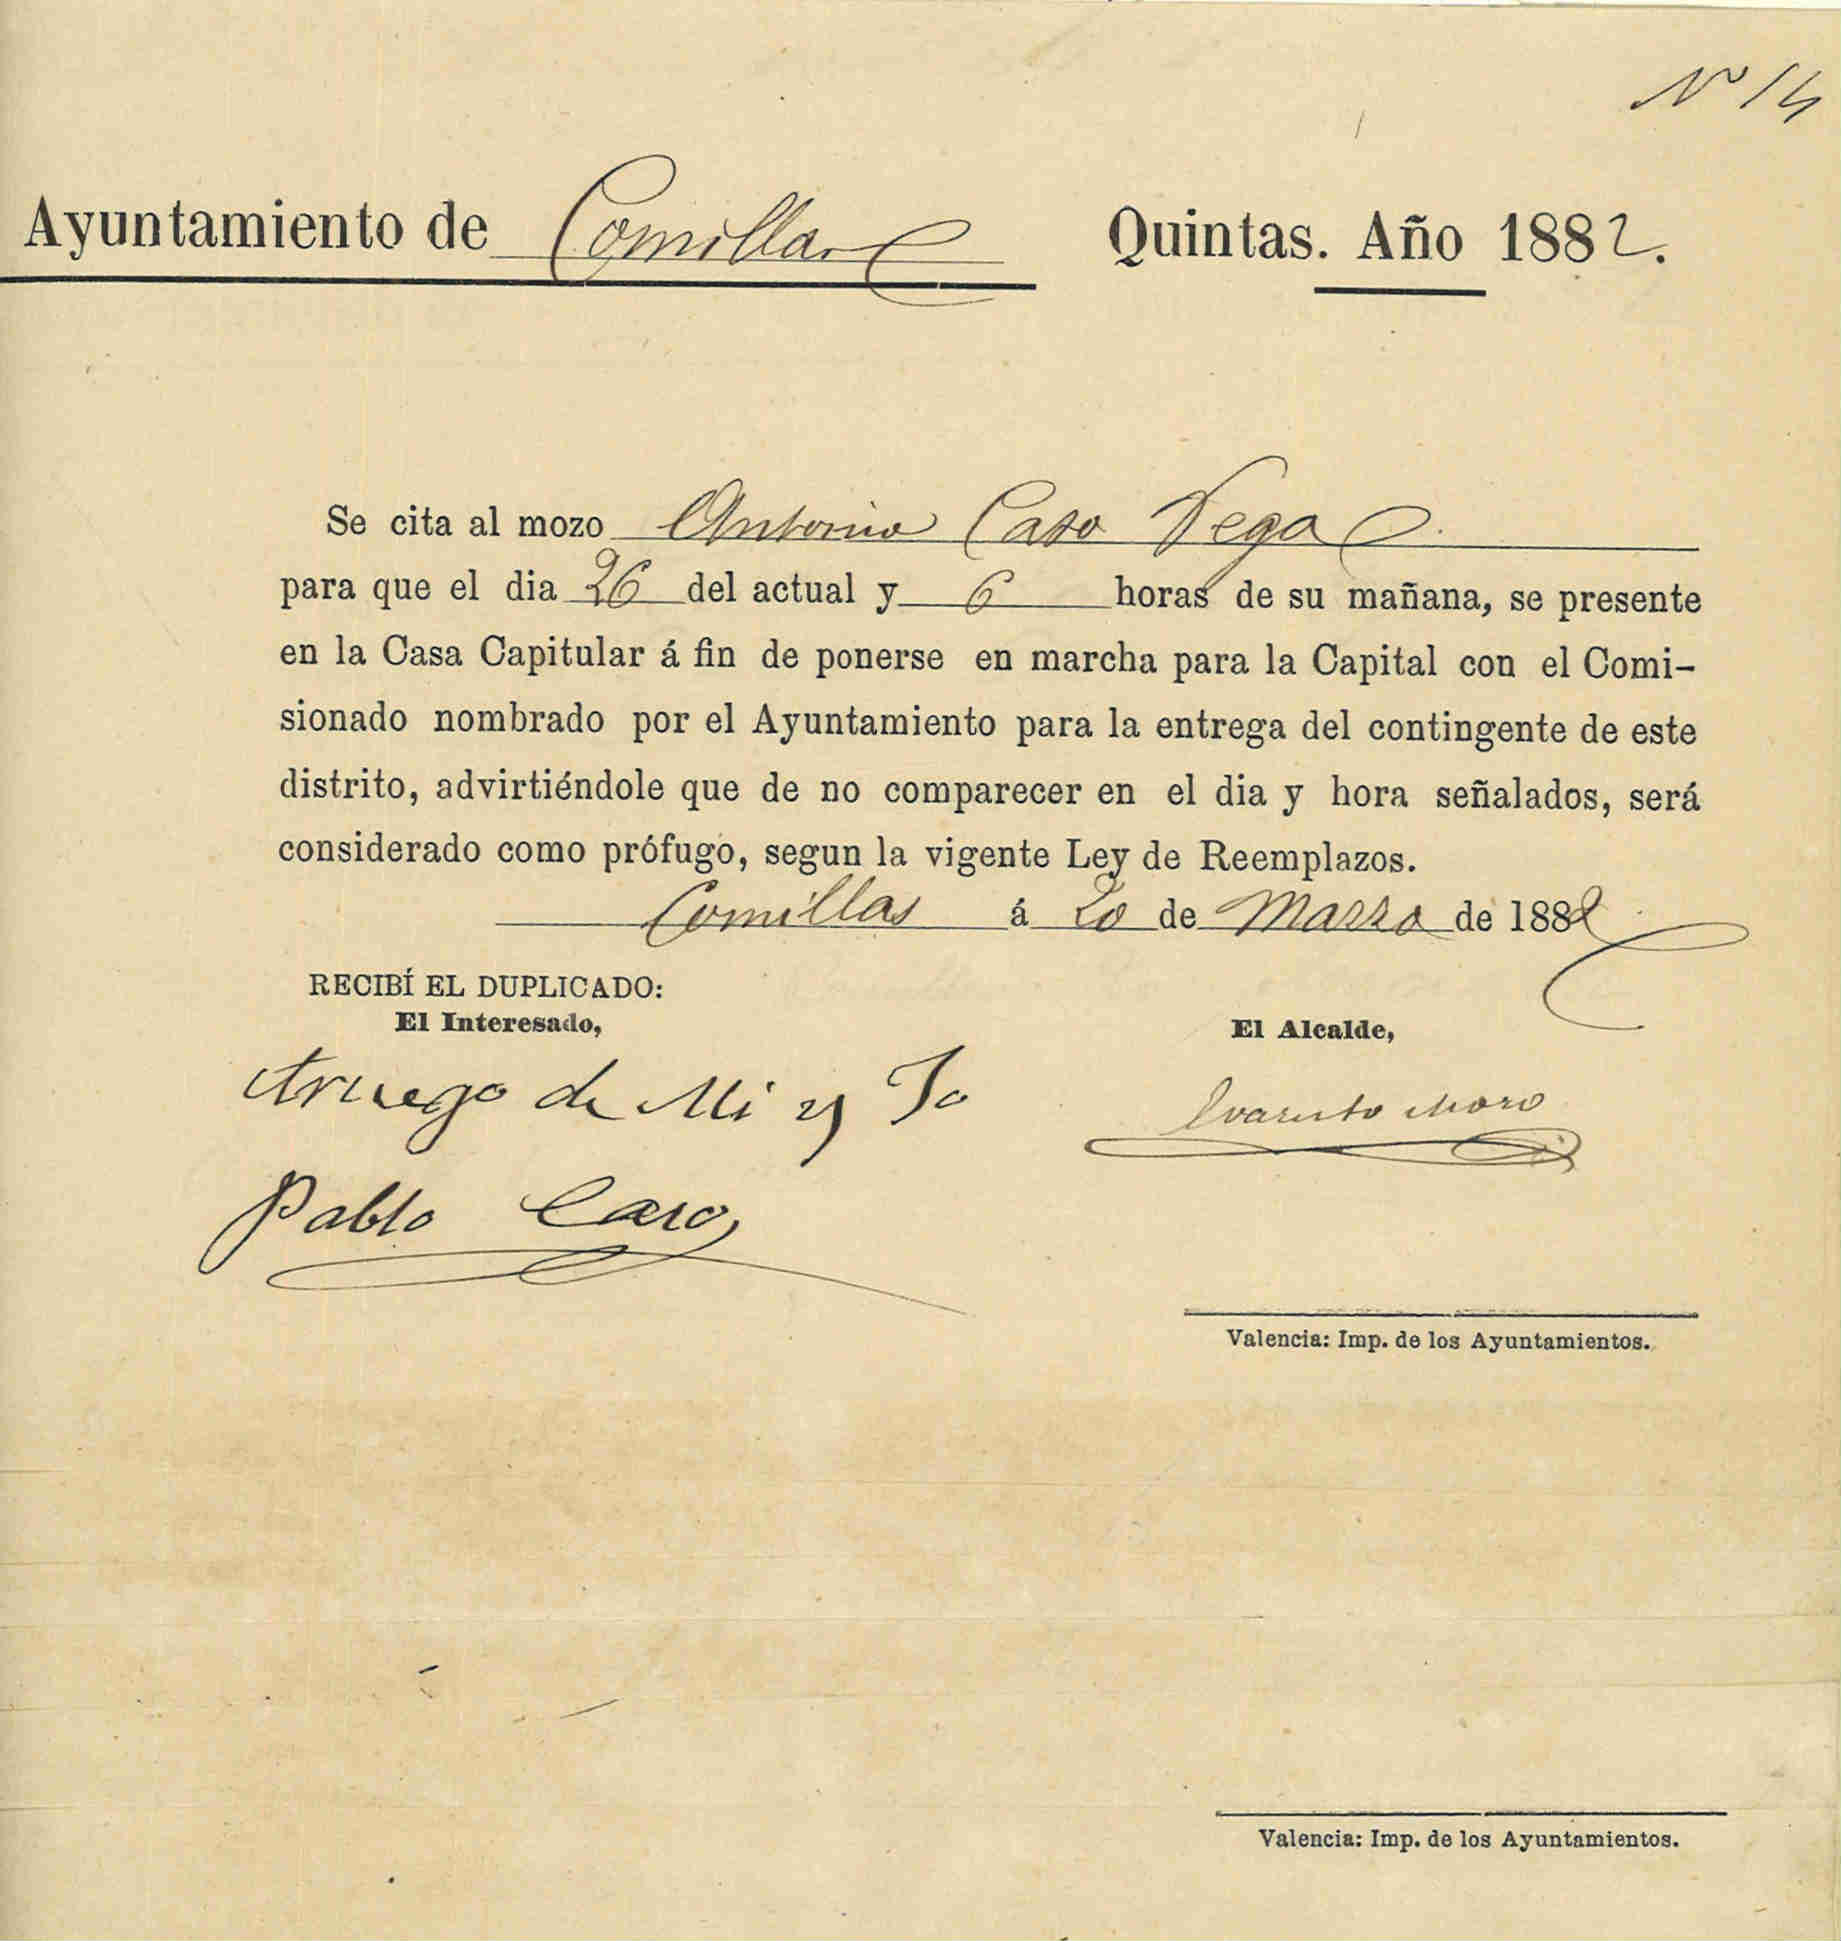 Nº 14
Ayuntamiento de Comillas Quintas. Año 1882.
Se cita al mozo Antonio Caso Vega
para que el dia 26 del actual y 6 horas de su mañana, se presente
en la Casa Capitular á fin de ponerse en marcha para la Capital con el Comi-
sionado nombrado por el Ayuntamiento para la entrega del contingente de este
distrito, advirtiéndole que de no comparecer en el dia y hora señalados, será
considerado como prófugo, segun la vigente Ley de Reemplazos.
Comillas á 20 de Marzo de 1882
RECIBÍ EL DUPLICADO:
El Interesado,
El Alcalde,
Aruego de Mi y Jo
Evaristo Moro
Pablo Caso
Valencia: Imp. de los Ayuntamientos.
Valencia: Imp. de los Ayuntamientos.